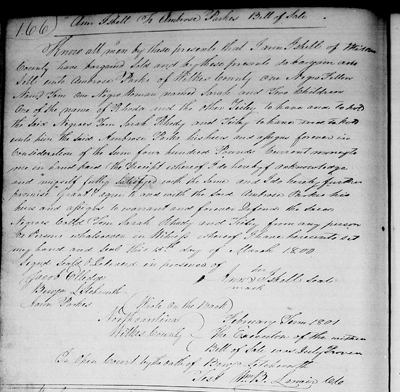 166 Ann Isbell To Ambrose Parkes Bill of Sale
Know all men by these presents that I Ann Isbell of Wilkes
County have bargained Sold and by these presents do bargain and
Sell unto Ambrose Parks of Wilkes County one Negro Fellow
Named Tom one Negro Woman named Sarah and Two Children
One of the name of Rhody and the other Toby to have and to hold
the said Negroes Tom Sarah Rhody and Toby to have and to hold
unto him the said Ambrose Parks his heirs and assigns forever in
Consideration of the Sum four hundred Pounds Current money to
me in hand paid the Receipt whereof I do hereby acknowledge
and myself fully Satisfyed with the same and I do hereby further
promise Grant & agree to and with the said Ambrose Parkes his
heirs and assigns to warrant and forever Defend the said
Negroes Called Tom Sarah Rhody and Toby from any person
or Persons whatsoever in Witness whereof I have hereunto set
my hand and Seal this 15th day of March 1800
Signd Seald & Delivered in presence of her
Jacob Ann Isbell Seal
Benja mark
Parkes
State on the Back
North Carolina February Term 1801
Wilkes County The Execution of the within
Bill of Sale was Duly Proven
In Open Court by the oath of Benja
Test Wm B. Lenoir